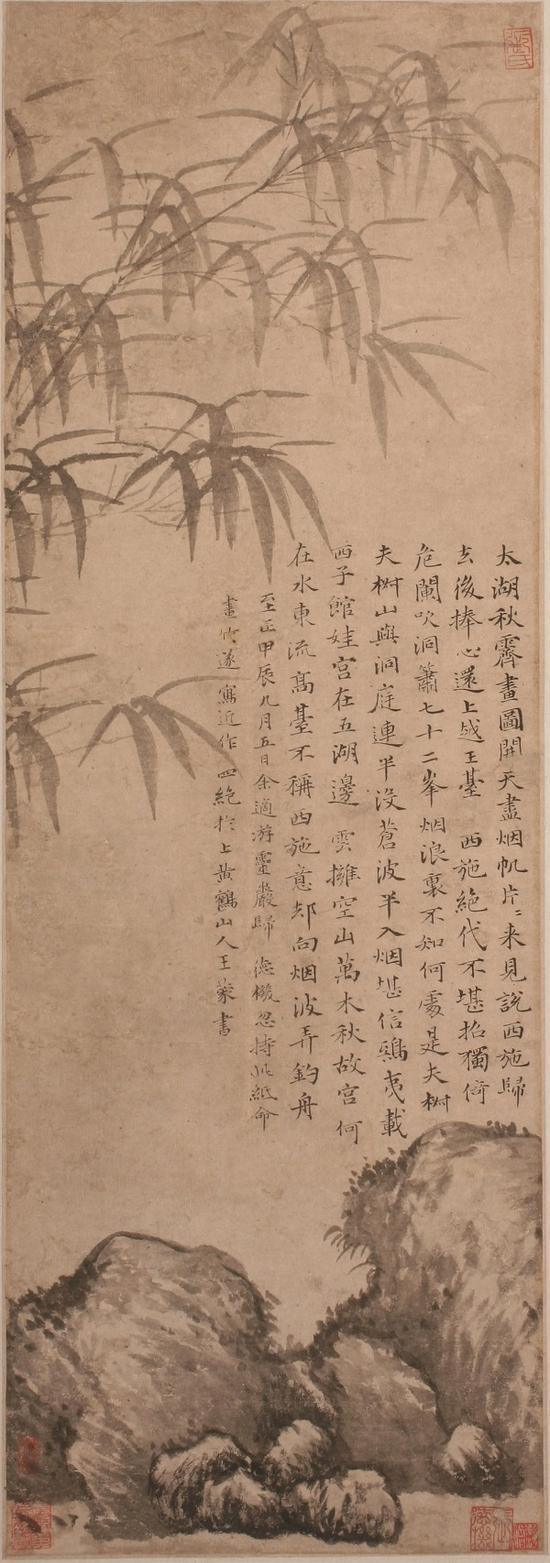 太湖秋霽畫圖開天盡烟帆片〻来見說西施歸
去後捧心還上越王臺　西施絕代不堪招獨倚
危闌吹洞簫七十二峯烟浪裏不知何處是夫椒
夫椒山與洞庭連半没蒼波半入烟堪信鴟夷載
西子館娃宫在五湖邊　雲擁空山萬木秋故宫何
在水東流髙臺不稱西施意却向烟波弄釣舟
至正甲辰九月五日余適游靈巖歸　德機忽持此紙命
畫竹遂寫近作四絶扵上黄鶴山人王蒙書